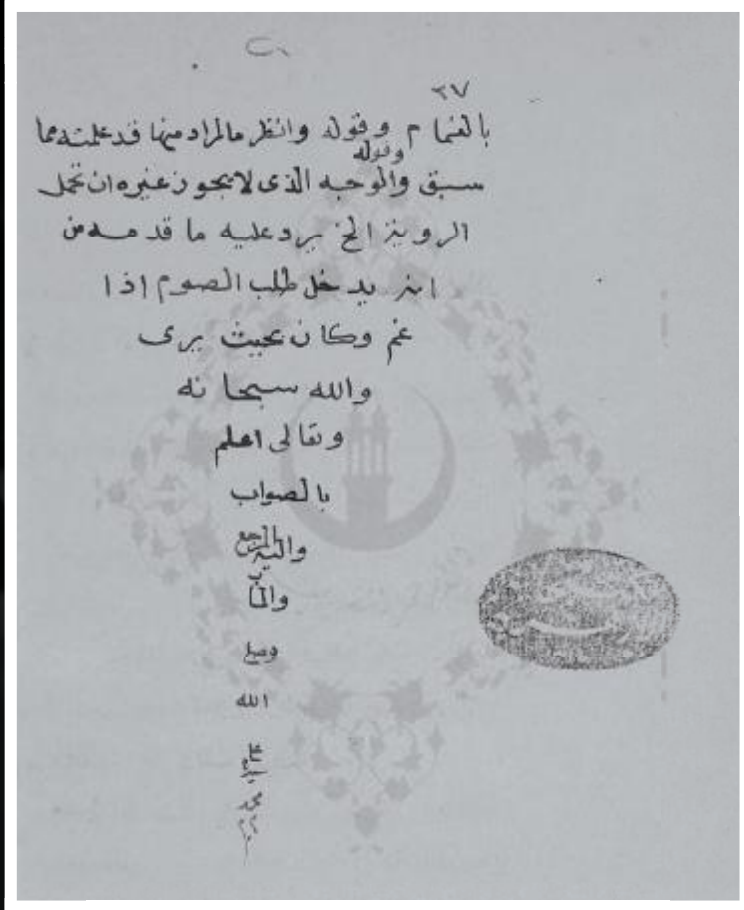 ٢٧
بالغمام وقوله وانظر مالمراد منها قد علمته مما
وقوله
سبق والوجه الذى لايجوز غيره ان تحمل
الروية الخ يرد عليه ما قدمه من
انه يدخل طلب الصوم اذا
غم وكان بحيث يرى
والله سبحانه
وتعالى اعلم
بالصواب
واليه المرجع
والمآب
وصلى
الله
على
سيدنا
محمد